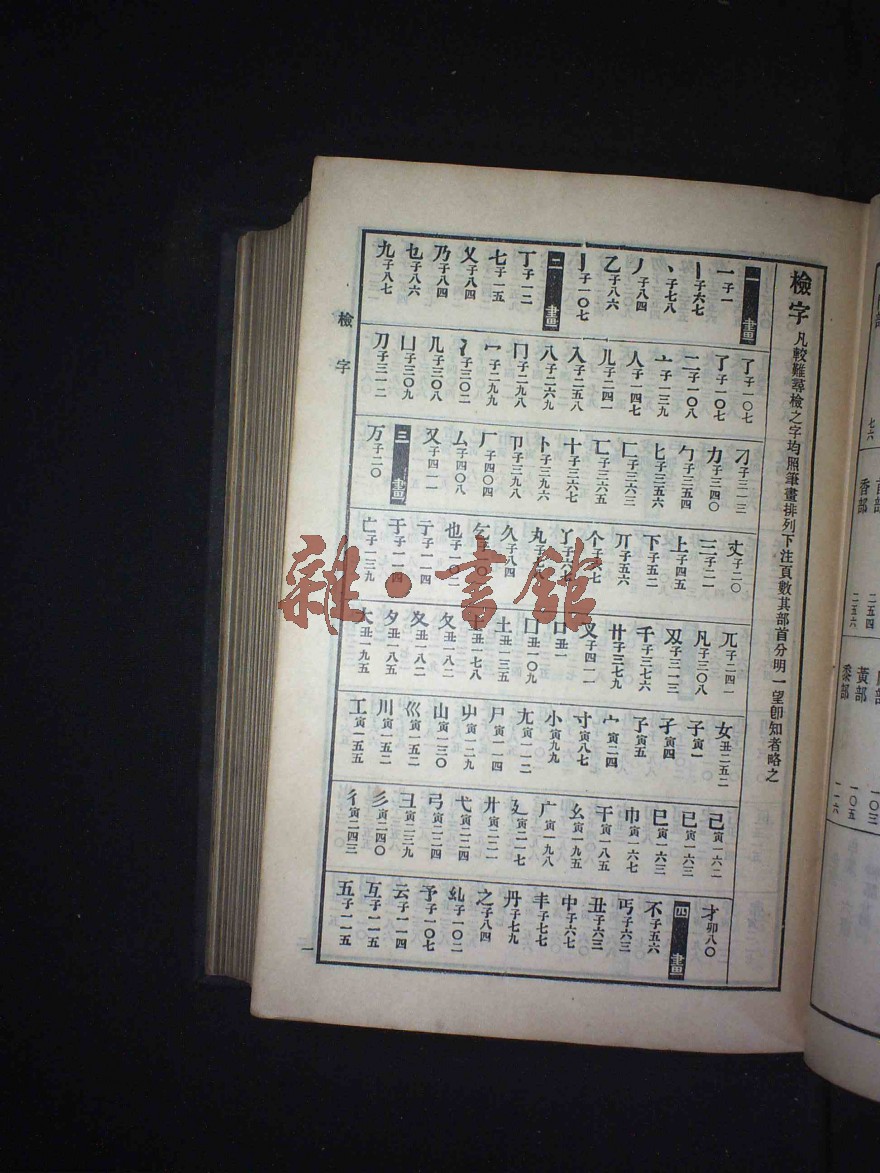 檢字 凡較難尋檢之字均照筆畫排列下注頁數其部首分明一望卽知者略之
一畫
一子一
丨子六七
丶子七八
丿子八四
乙子八六
亅子一〇七
二畫
丁子一二
七子一五
乂子八四
乃子八四
乜子八六
九子八七
了子一〇七
了子一〇七
二子一〇八
亠子一三九
人子一四七
儿子二四一
入子二五八
八子二六九
冂子二九八
冖子二九九
冫子三〇二
几子三〇八
凵子三〇九
刀子三一二
刁子三一三
力子三四〇
勹子三五四
匕子三五六
匚子三六三
匸子三六五
十子三六七
卜子三九六
卩子三九八
厂子四〇四
厶子四〇八
又子四一一
三畫
万子二〇
丈子二〇
三子二一
上子四五
下子五二
丌子五六
个子六七
丫子六七
丸
久子八四
乞子
也子一〇二
亍子一一四
于子一一四
亡子一三九
兀子二四一
凡子三〇八
刄子三一三
千子三七六
卄子三七九
叉子四一一
口丑一
囗丑一〇九
土丑一三五
士丑一七八
夂丑一八二
夊丑一八二
夕丑一八五
大丑一九五
女丑二五二
子寅一
孑寅四
孓寅五
宀寅二四
寸寅八七
小寅九九
尢寅一一二
尸寅一一四
屮寅一二九
山寅一三〇
巛寅一五二
川寅一五二
工寅一五五
己寅一六二
已寅一六三
巳寅一六三
巾寅一六七
干寅一八五
幺寅一九五
广寅一九八
廴寅二一七
廾寅二二一
弋寅二二四
弓寅二二四
彐寅二三九
彡寅二四〇
彳寅二四三
才卯八〇
四畫
不子五六
丐子六三
丑子六三
中子六七
丰子七七
丹子七九
之子八四
乣子一〇二
予子一〇七
云子一一四
互子一一五
五子一一五
檢字
一
雜·書館
香部
二五四
二五六
黃部
黍部
一〇三
一〇五
七六